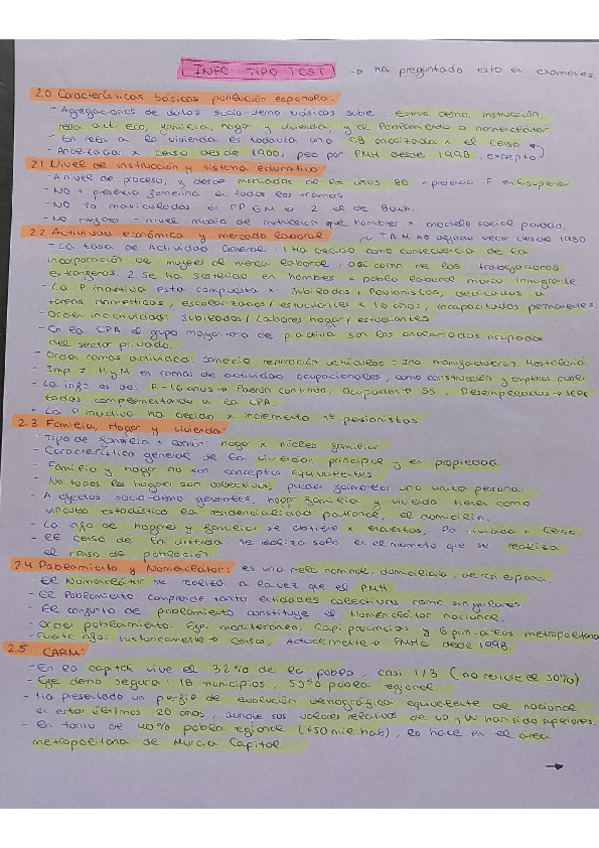 INFO TIPO TEST → ha preguntado esto en examenes
2.0 Características básicas población española:
- Agregaciones de datos socio-demo básicos sobre estruc demo, instrucción,
relac act. eco, familia, hogar y vivienda, y el Poblamiento o nomenclátor.
- En relac a la vivienda es todavía una analizada x el Censo
- Analizada x Censo desde 1900, pero por PMH desde 1998, excepto
2.1 Nivel de instrucción y sistema educativo
- A nivel de proceso, y desde mediados de los años 80 + presenc F en superior
- NO + presencia femenina en todos los tramos
- NO la matriculados en FP GM el 2 el de Bach.
- NO mujeres - nivel medio de matrícula que hombres x modelo social pasado.
2.2 Actividad económica y mercado laboral → TAM no dejado crecer desde 1980
- La tasa de Actividad General: 1 Ha crecido como consecuencia de la
incorporación de mujeres al merca laboral, así como de los trabajadores
extranjeros. 2. Se ha sostenido en hombres x pobla laboral mascu inmigrante.
- La P inactiva esta compuesta x: Jubilados / Pensionistas, dedicados a
tareas domésticas, escolarizados / estudiantes < 16 años, incapacitados permanentes.
- Orden inactividad: Jubilados / Labores hogar / estudiantes
- En la CPA el grupo mayoritario de p activa son los asalariados ocupados
del sector privado.
- Orden ramas actividad: Comercio reparación vehículos - Ind manufacturera y Hostelería
- Imp ≠ H y M en ramas de actividad ocupacionales, como construcción y empleos
- La info es de: P. -16 años → Padrón continuo, Ocupados → SS, Desempleados → SEPE
todos complementando a la CPA.
- La P inactiva ha crecido x incremento nº pesionistas
2.3 Familia, Hogar y vivienda:
- Tipo de familia + común: hogar x núcleo familiar.
- Característica general de la vivienda: principal y en propiedad.
- Familia y hogar no son conceptos equivalentes
- No todos los hogares son colectivos, puede formarlos una única persona.
- A efectos socio-demo generales, hogar familia y vivienda tienen como
vínculo estadístico la residencialidad patronal, el domicilio.
- La info de hogares y familias se obtiene x encuestas, Pa vivienda → Censo
- El censo de la vivienda se realiza solo en el momento que se realiza
el censo de población
2.4 Poblamiento y Nomenclátor: es una relac nominal, domiciliaria,
- El Nomenclátor se realiza a la vez que el PMH.
- El Poblamiento comprende tanto entidades colectivas como singulares.
- El conjunto de poblamiento constituye el Nomenclátor nacional.
- Orden poblamiento: Eje mediterráneo, Capi provincias y 6 prin. áreas metropolitana
- Fuente info: históricamente → Censos, Actualmente → PMH desde 1998.
2.5 CARM
- En la capital vive el 32% de la pobla, casi 1/3 (no reside el 50%)
- Eje demo segura: 18 municipios, 59% pobla regional.
- Ha presentado un perfil de evolución demográfica equivalente al nacional
en estos últimos 20 años, aunque sus valores relativos de han sido superiores.
- En torno de 40% pobla regional (650 mil hab), lo hace en el área
metropolitana de Murcia Capital
→